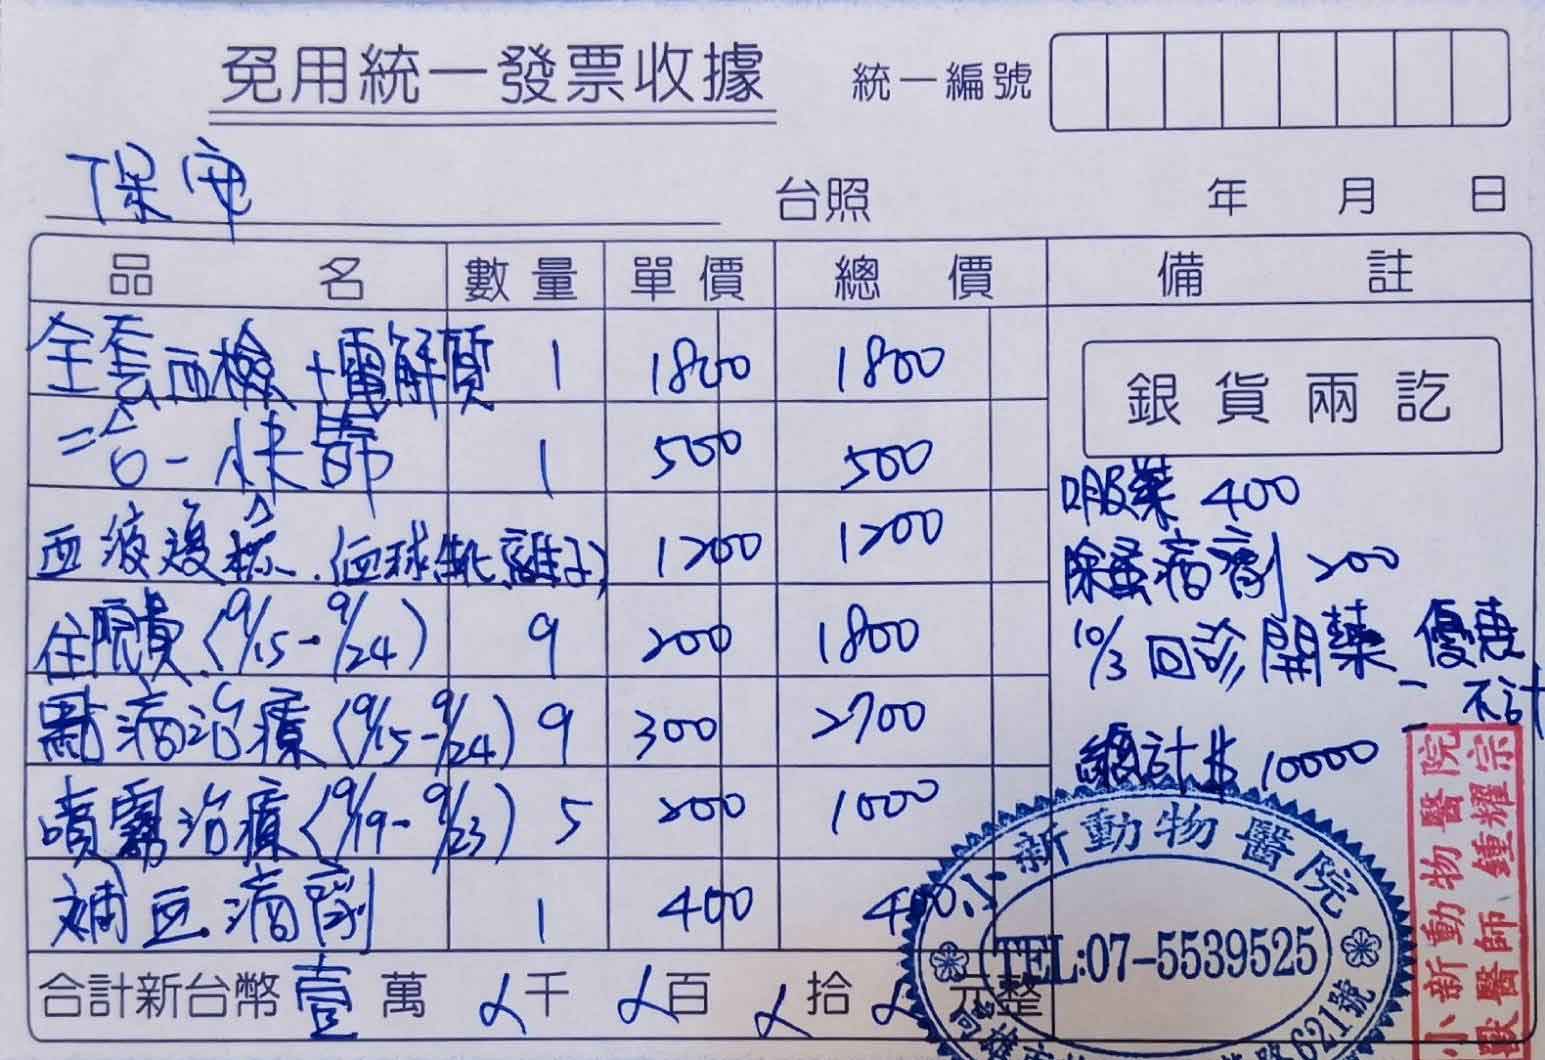 免用統一發票收據 統一編號
保安 台照 年 月 日
品名 數量 單價 總價 備註
全套血檢+電解質 1 1800 1800
二合一快篩 1 500 500
血液複檢.(血球,生化,離子) 1200 1200
住院費(9/15-9/24) 9 200 1800
點滴治療(9/15-9/24) 9 300 2700
噴霧治療(9/19-9/23) 5 200 1000
補血滴劑 1 400 400
合計新台幣壹萬 千 百 拾 元整
銀貨兩訖
口服藥 400
除蚤滴劑 200
10/3 回診開藥-優惠
-不計
總計$ 10000
小新動物醫院
TEL:07-5539525
621號
小新動物醫院
獸醫師 鍾耀宗